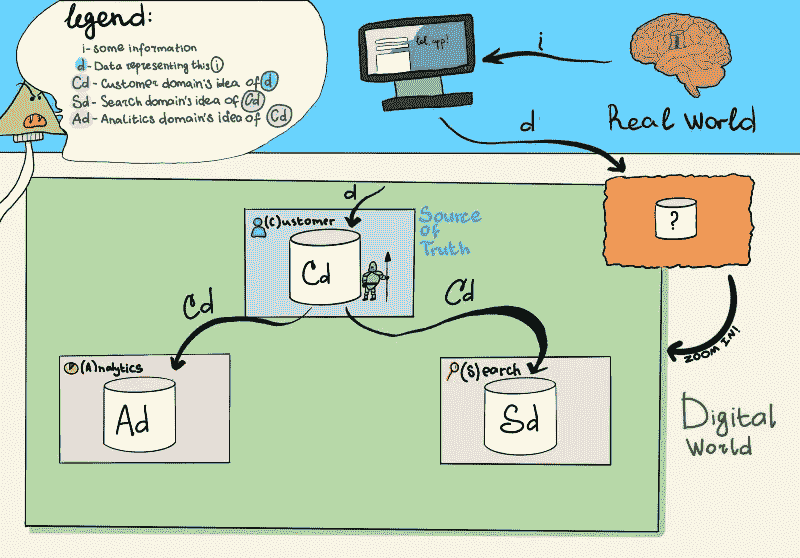 legend:
i - some information
d - Data representing this i
Cd - Customer domain's idea of d
Sd - Search domain's idea of Cd
Ad - Analitics domain's idea of Cd
i
Real World
d
?
d
(C)ustomer
Source
of
Truth
Cd
Cd
Cd
ZOOM IN!
(A)nalytics
(S)earch
Ad
Sd
Digital
World